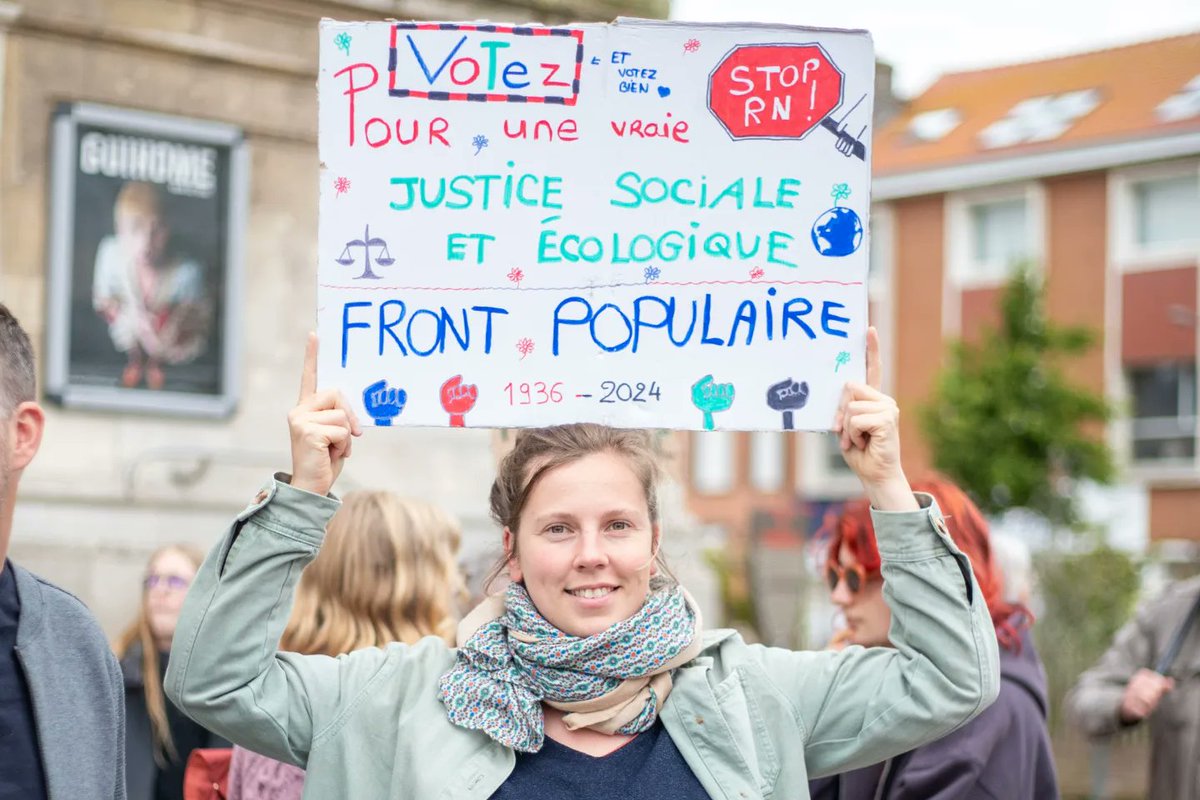 VOTEZ
← ET
VOTEZ
BIEN
STOP
RN!
POUR UNE VRAIE
JUSTICE SOCIALE
ET ÉCOLOGIQUE
FRONT POPULAIRE
1936 - 2024
GUIHOME